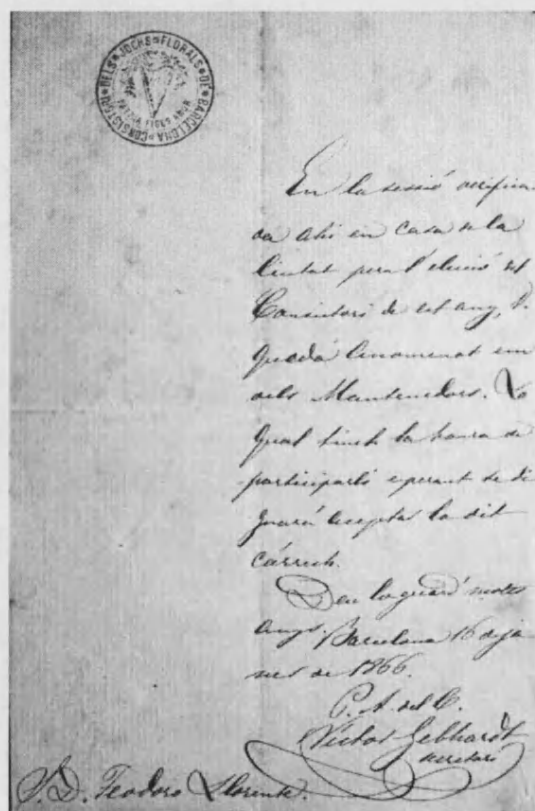 CONSISTORI DELS JOCHS FLORALS DE BARCELONA
En la sessió verifica
da ahi en Casa de la
Ciutat pera l'elecció del
Consistori de est any, V.
quedá anomenat un
dels Mantenedors. Lo
qual tinch la honra de
participarli esperant se di
gnará acceptar lo dit
cárrech.
Deu lo guard' molts
anys. Barcelona 16 de ja
ner de 1866.
P. A. del C.
Victor Gebhardt
secretari
S. D. Teodoro Llorente.